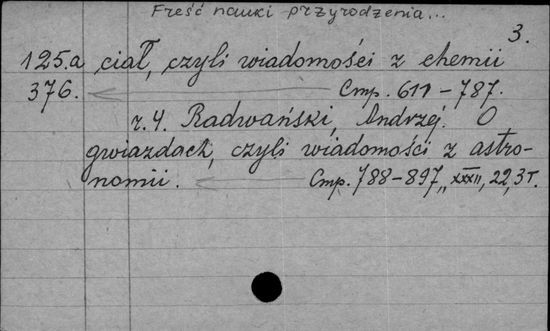 Freść nauki przyrodzenia...
3.
125.a ciał, czyli wiadomości z chemii
376. Стр. 611-787.
z.4. Radwański, Andrzej. O
gwiazdach, czyli wiadomości z astro-
nomii. Стр. 788-897, XXXII, 22, 3 т.